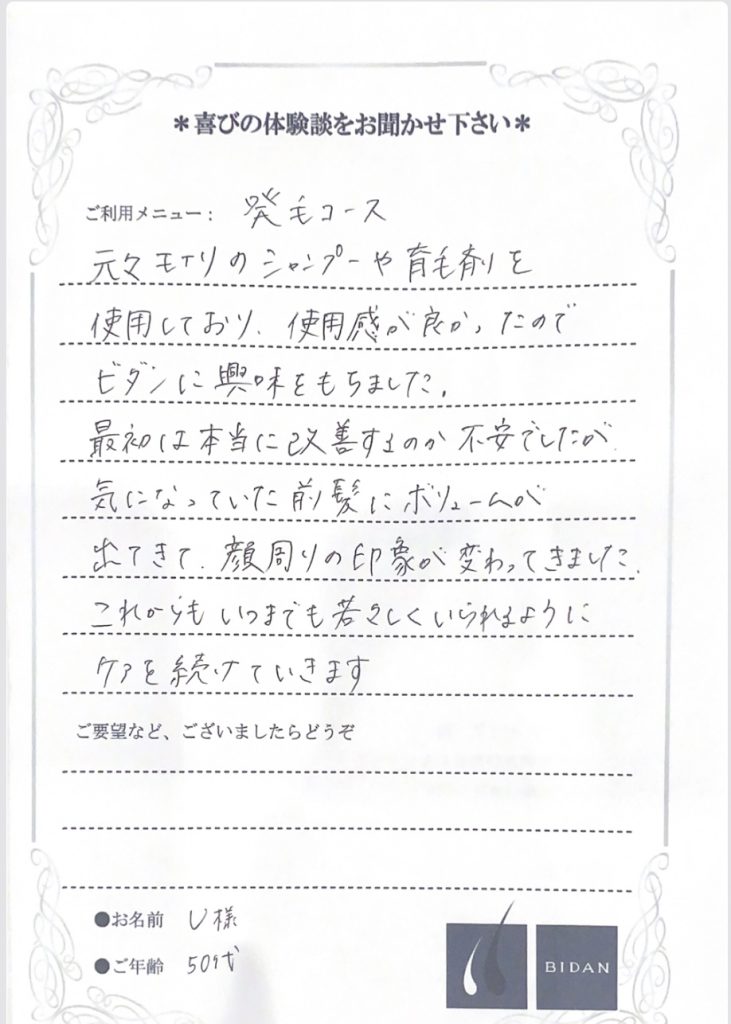 ＊喜びの体験談をお聞かせ下さい＊
ご利用メニュー： 発毛コース
元々モイリのシャンプーや育毛剤を
使用しており、使用感が良かったので
ビダンに興味をもちました。
最初は本当に改善するのか不安でしたが
気になっていた前髪にボリュームが
出てきて、顔周りの印象が変わってきました。
これからもいつまでも若々しくいられるように
ケアを続けていきます
ご要望など、ございましたらどうぞ
●お名前 U様
●ご年齢 50代
BIDAN